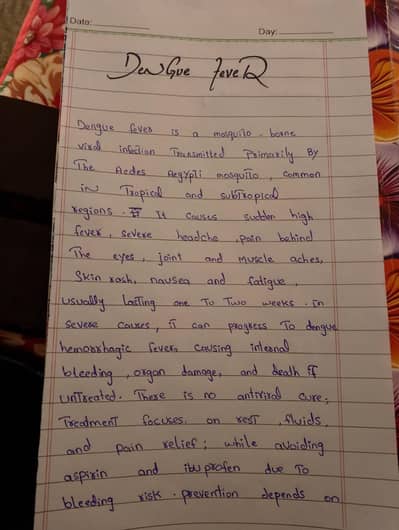 Date:
Day:
Dengue Fever
Dengue fever is a mosquito-borne
viral infection Transmitted Primarily By
The Aedes Aegypti mosquito, common
in Tropical and subTropical
regions. It causes sudden high
fever, severe headche, pain behind
The eyes, joint and muscle aches,
Skin rash, nausea and fatigue,
usually lasting one To Two weeks. in
severe causes, it can progress To dengue
hemorrhagic fever, causing internal
bleeding, organ damage, and death if
unTreated. There is no antiviral cure;
Treatment focuses on rest, fluids,
and pain relief; while avoiding
aspirin and ibuprofen due To
bleeding risk. prevention depends on